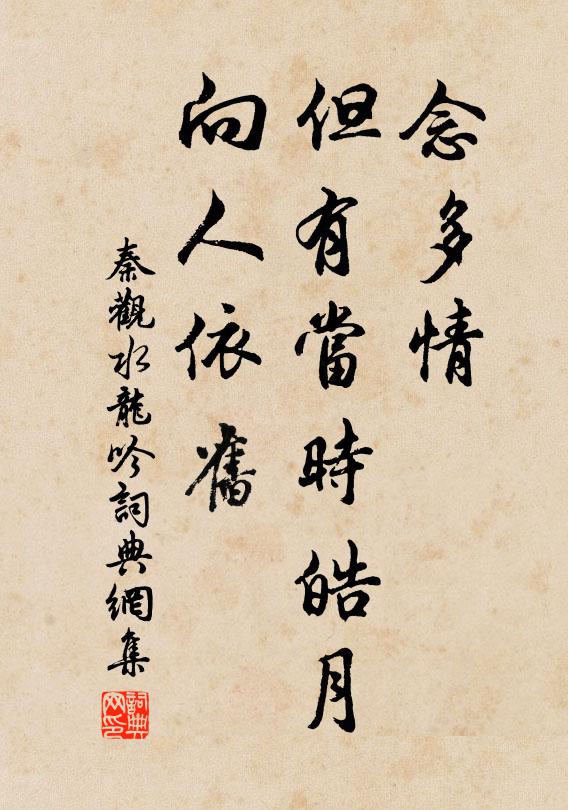 念多情
但有當時皓月
向人依舊
秦觀水龍吟詞典網集
詞典网印